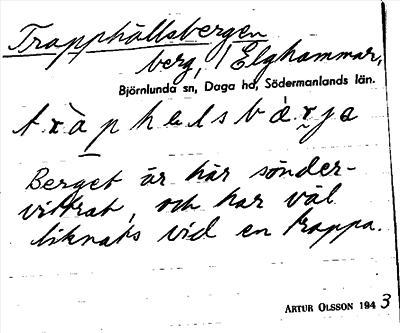 Trapphällsbergen
berg, Elghammar,
Björnlunda sn, Daga hd, Södermanlands län.
Berget är här sönder-
vittrat, och har väl
liknats vid en trappa.
ARTUR OLSSON 1943